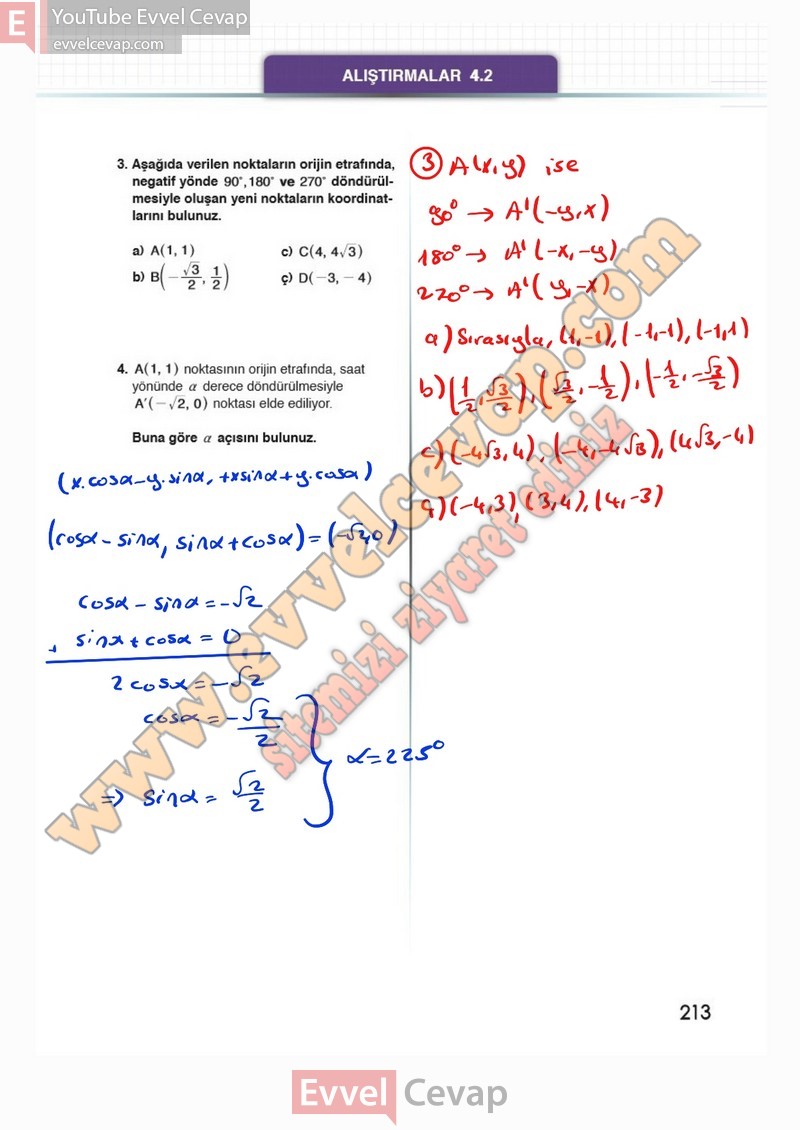 E YouTube Evvel Cevap
evvelcevap.com
ALIŞTIRMALAR 4.2
3. Aşağıda verilen noktaların orijin etrafında,
negatif yönde 90°, 180° ve 270° döndürül-
mesiyle oluşan yeni noktaların koordinat-
larını bulunuz.
a) A(1, 1)
c) C(4, 4√3)
b) B(-√3/2, 1/2)
ç) D(-3, -4)
4. A(1, 1) noktasının orijin etrafında, saat
yönünde α derece döndürülmesiyle
A′(-√2, 0) noktası elde ediliyor.
Buna göre α açısını bulunuz.
(x.cosα-y.sinα, +xsinα+y.cosα)
(cosα-sinα, sinα+cosα)=(-√2,0)
cosα-sinα=-√2
+ sinα+cosα=0
2cosα=-√2
cosα=-√2/2
=> sinα=√2/2
α=225°
③ A(x,y) ise
90° → A'(-y,x)
180° → A'(-x,-y)
270° → A'(y,-x)
a) Sırasıyla, (1,-1), (-1,-1), (-1,1)
b) (1/2, √3/2), (√3/2, -1/2), (-1/2, -√3/2)
c) (-4√3, 4), (-4, -4√3), (4√3, -4)
ç) (-4,3), (3,4), (4,-3)
www.evvelcevap.com
sitemizi ziyaret ediniz
213
Evvel Cevap